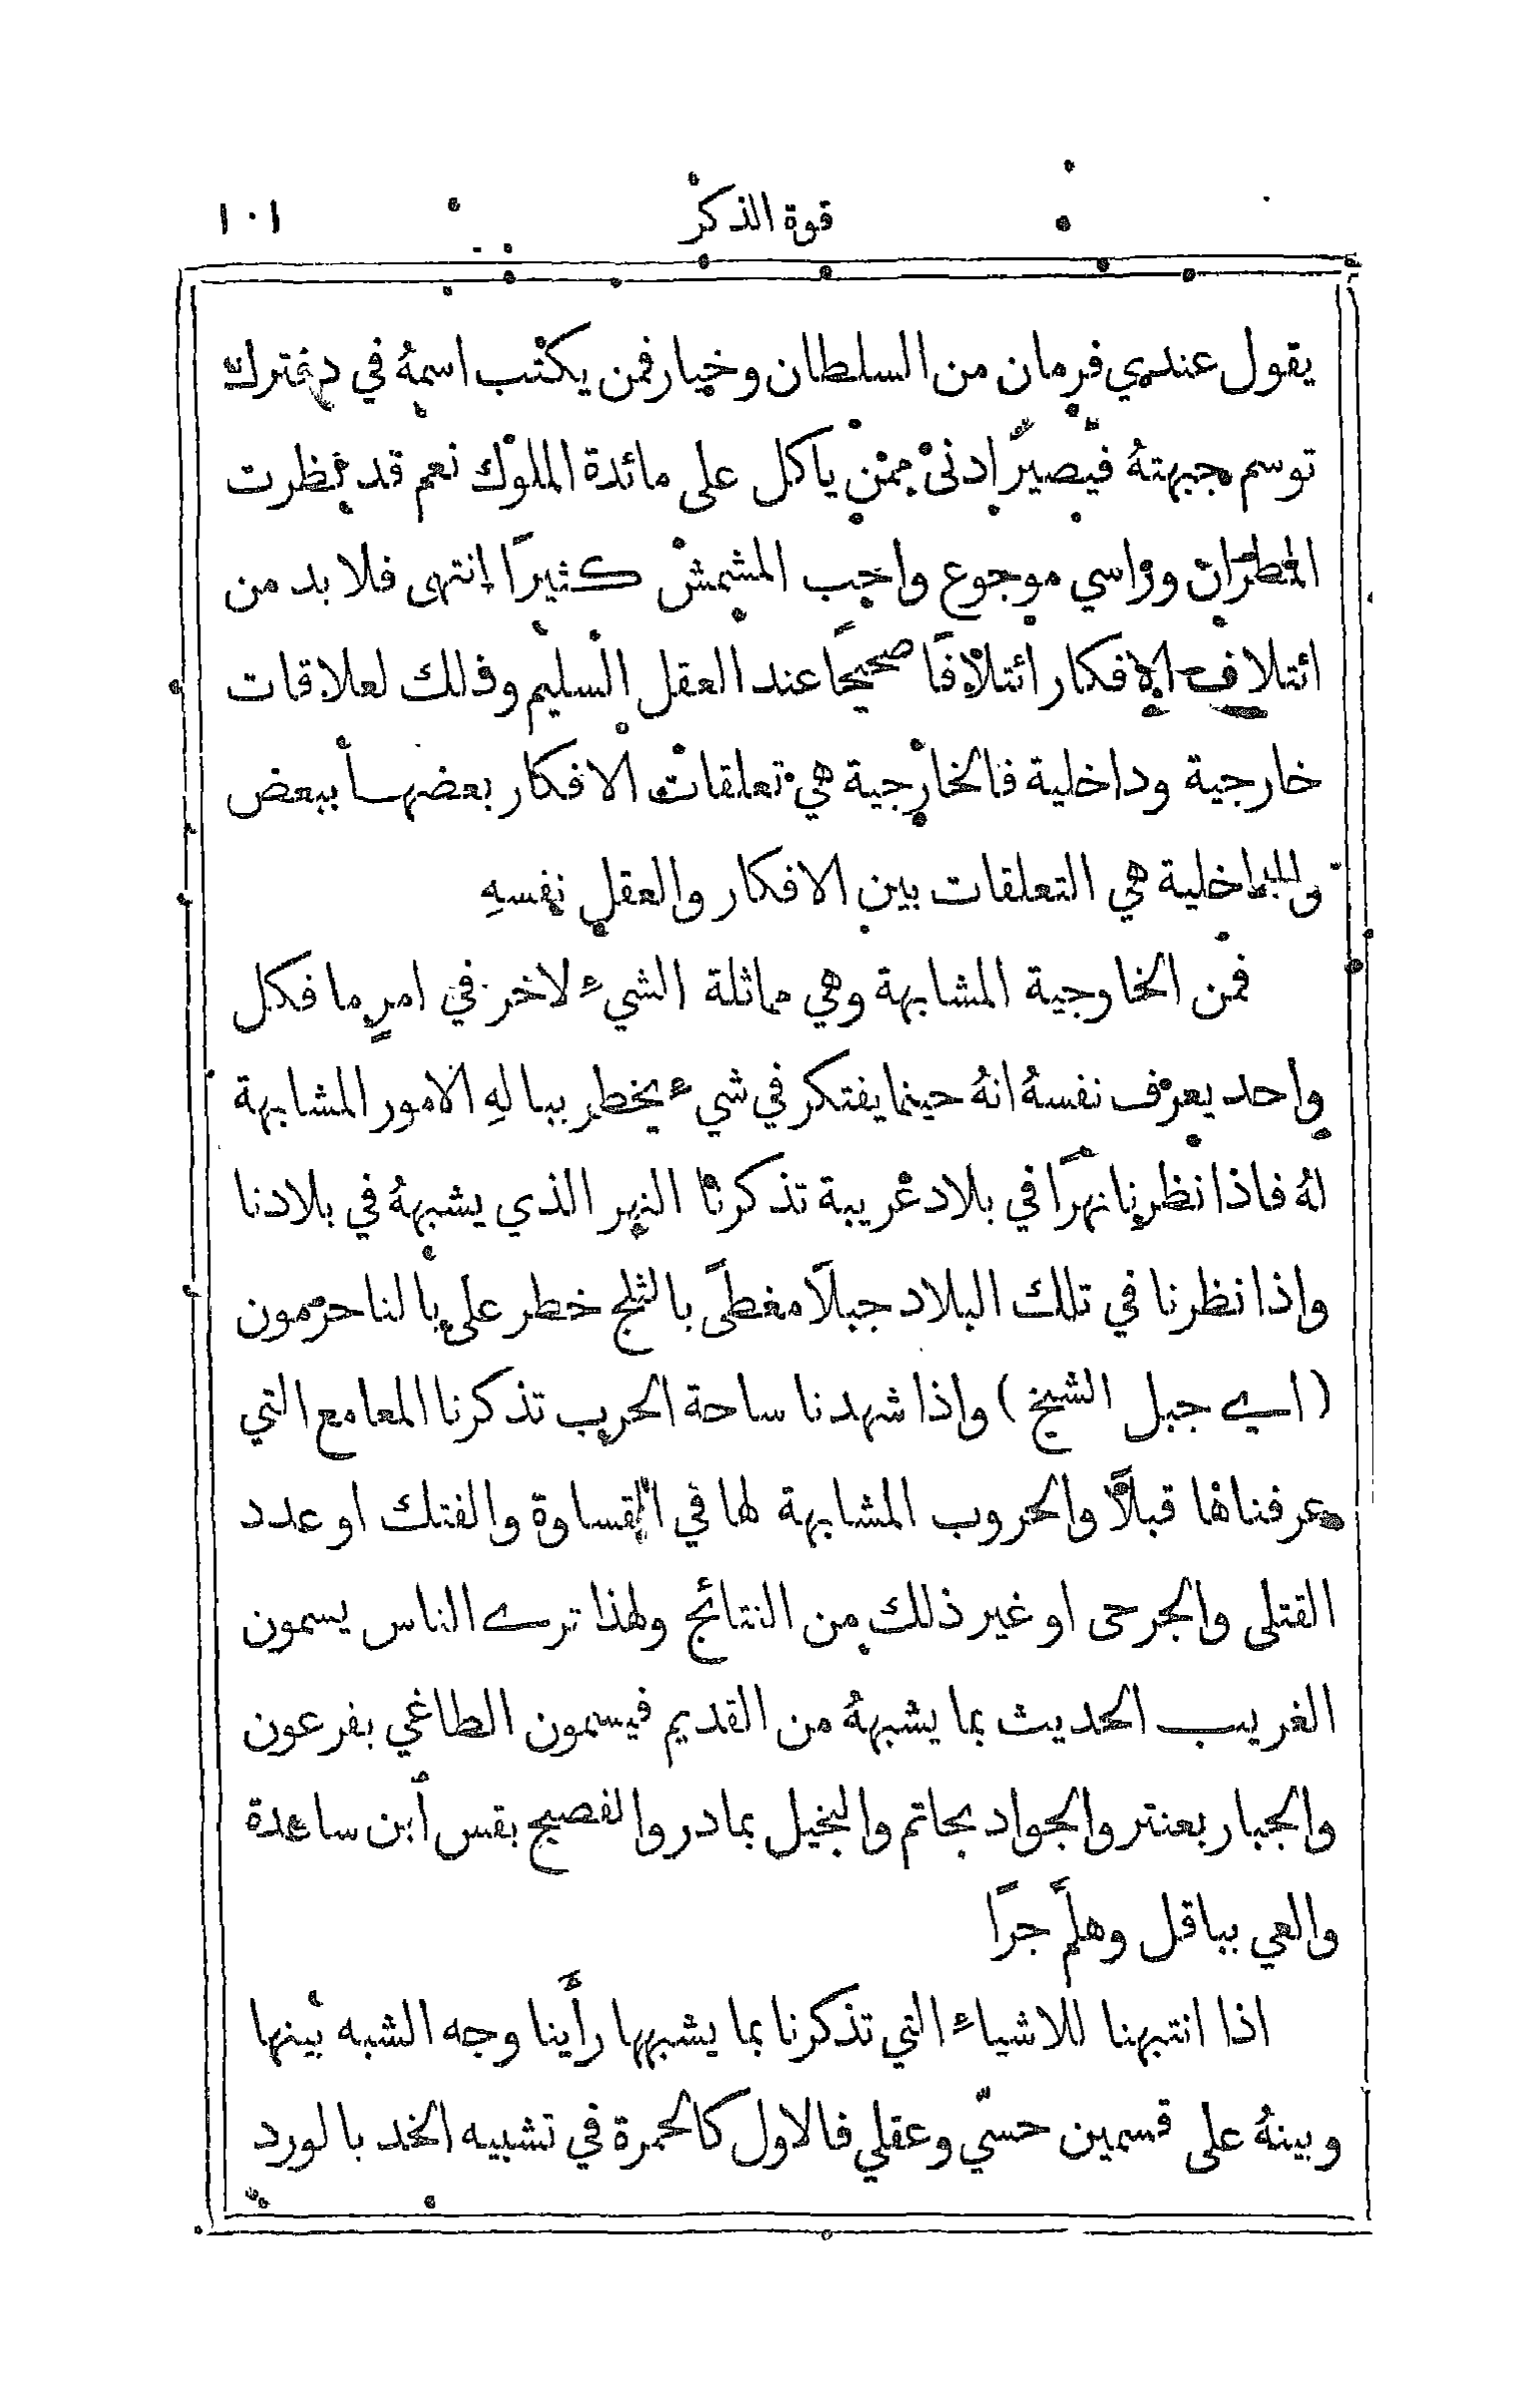 قوة الذكر ١٠١
يقول عندي فرمان من السلطان وخيار فمن يكتب اسمهُ في دفترك
توسم جبهتهُ فيصير ادنى ممن ياكل على مائدة الملوك نعم قد نظرت
المطران وراسي موجوع واحب المشمش كثيرًا إنتهى فلا بد من
ائتلاف الافكار ائتلافًا صحيحًا عند العقل السليم وذلك لعلاقات
خارجية وداخلية فالخارجية هي تعلقات الافكار بعضها ببعض
والداخلية هي التعلقات بين الافكار والعقل نفسهِ
فمن الخاوجية المشابهة وهي مماثلة الشيء لاخر في امرٍ ما فكل
واحد يعرف نفسهُ انهُ حينما يفتكر في شيء يخطر ببالهِ الامور المشابهة
لهُ فاذا نظرنا نهرًا في بلاد غريبة تذكرنا النهر الذي يشبههُ في بلادنا
واذا نظرنا في تلك البلاد جبلًا مغطًى بالثلج خطر على بالنا حرمون
(اي جبل الشيخ) واذا شهدنا ساحة الحرب تذكرنا المعامع التي
عرفناها قبلًا والحروب المشابهة لها في القساوة والفتك او عدد
القتلى والجرحى او غير ذلك من النتائج ولهذا ترى الناس يسمون
الغريب الحديث بما يشبههُ من القديم فيسمون الطاغي بفرعون
والجبار بعنتر والجواد بحاتم والبخيل بمادر والفصيح بقس أبن ساعدة
والعي بباقل وهلمَّ جرًا
اذا انتبهنا للاشياء التي تذكرنا بما يشبهها رأَينا وجه الشبه بينها
وبينهُ على قسمين حسّي وعقلي فالاول كالحمرة في تشبيه الخد بالورد